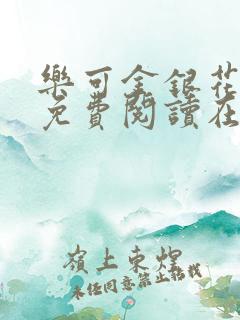 樂可金銀花
免費閱讀在
嶺上東蝗
未经同意禁止转载